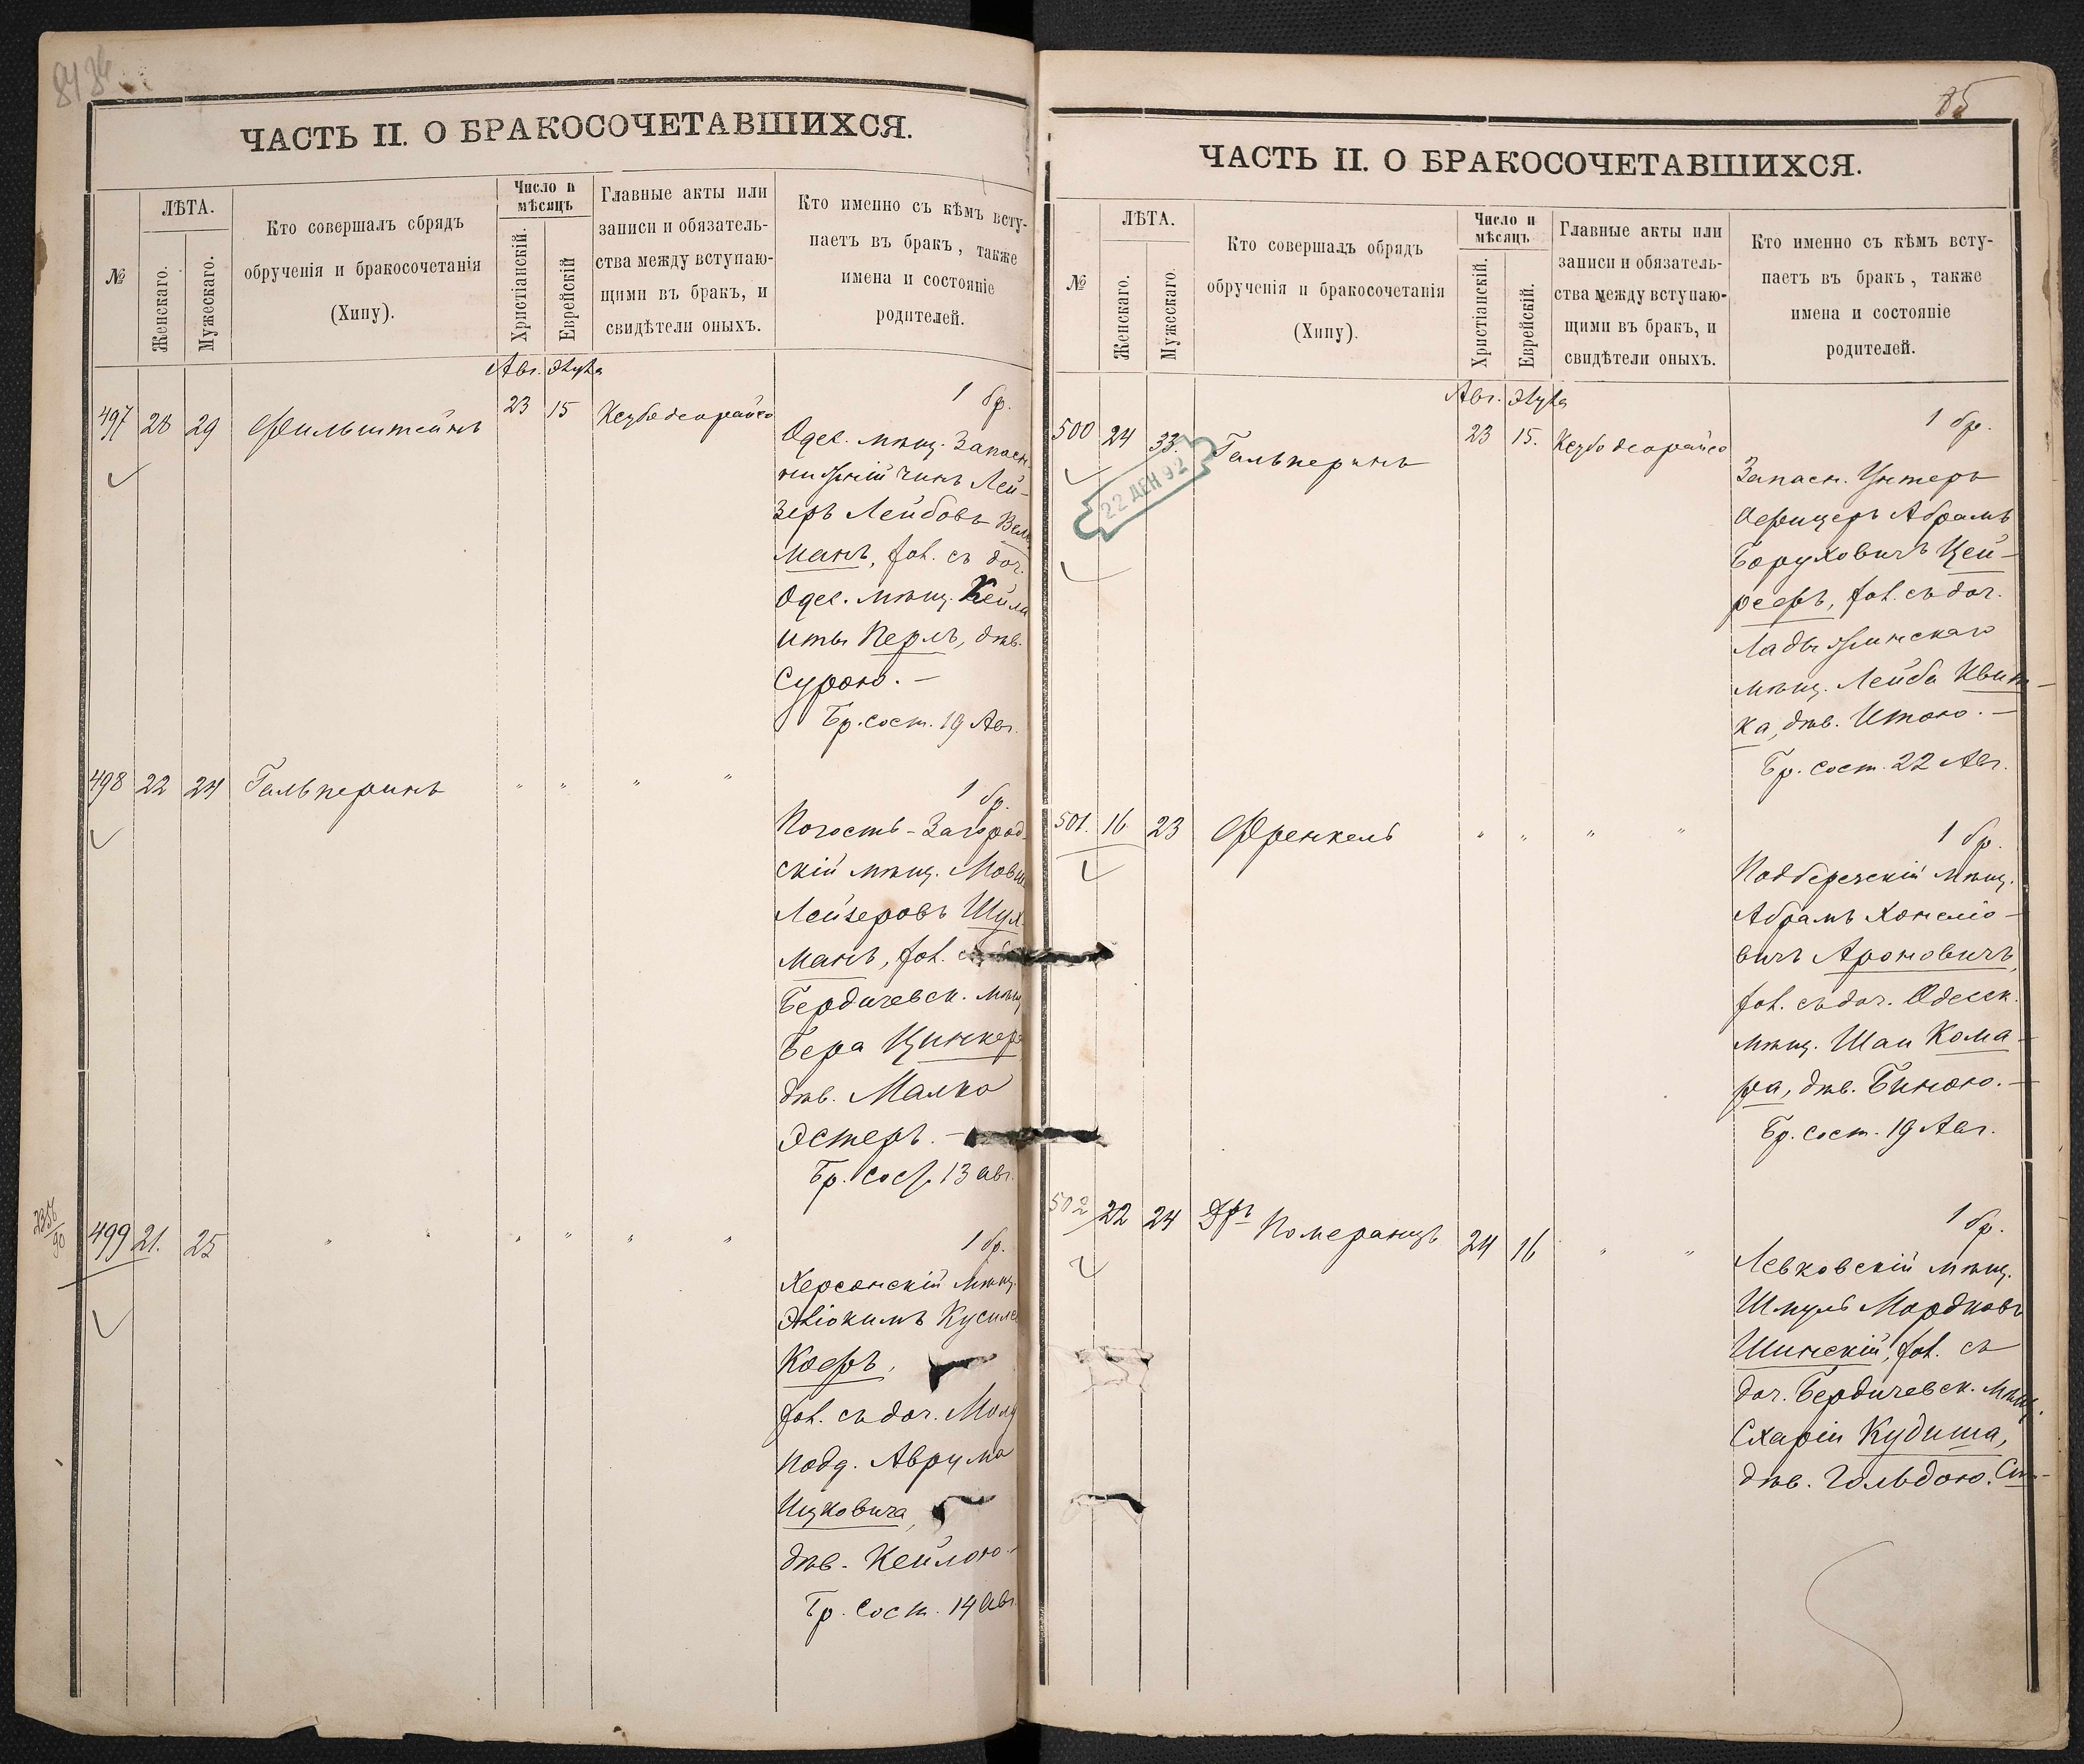 ЧАСТЬ II. О БРАКОСОЧЕТАВШИХСЯ.
№
ЛѢТА.
Женскаго.
Мужескаго.
Кто совершалъ обрядъ
обрученія и бракосочетанія
(Хипу).
Число и
мѣсяцъ
Христіанскій.
Еврейскій
Главные акты или
записи и обязатель-
ства между вступаю-
щими въ бракъ, и
свидѣтели оныхъ.
Кто именно съ кѣмъ всту-
паетъ въ бракъ, также
имена и состояніе
родителей.
Авг. Элула
497 28 29 Фильштейнъ 23 15 Ксубо деорайсо
1 бр.
Одес. мѣщ. Запасн.
нижній чинъ Лей-
зеръ Лейбовъ
манъ, хол. съ доч.
Одес. мѣщ. Кейла
Иты Перлъ, дѣв.
Сурою. —
Бр. сост. 19 Авг.
498 22 24 Гальперинъ " " " "
1 бр.
Погость-Загород
скій мѣщ. Мовш
Лейзеровъ Шух
манъ, хол.
Бердичевск. мѣщ
Бера Цинкер
дѣв. Малко
Эстеръ. —
Бр. сост. 13 авг.
499 21. 25 " " " " " "
1 бр.
Херсонскій мѣщ.
Кусиле
Кофъ,
хол. съ доч. Молд
подд. Аврума
Ицковича,
дѣв. Кейлою. —
Бр. сост. 14 Авг.
85
ЧАСТЬ II. О БРАКОСОЧЕТАВШИХСЯ.
№
ЛѢТА.
Женскаго.
Мужескаго.
Кто совершалъ обрядъ
обрученія и бракосочетанія
(Хипу).
Число и
мѣсяцъ
Христіанскій.
Еврейскій.
Главные акты или
записи и обязатель-
ства между вступаю-
щими въ бракъ, и
свидѣтели оныхъ.
Кто именно съ кѣмъ всту-
паетъ въ бракъ, также
имена и состояніе
родителей.
Авг. Элула
500 24 33. Гальперинъ 23 15. Ксубо деорайсо
22 ДЕН 92
1 бр.
Запасн. Унтеръ
Офицеръ Абрамъ
Боруховичъ Цей-
рефъ, хол. съ доч.
Ладыжинскаго
мѣщ. Лейба Квит-
ка, дѣв. Итою. —
Бр. сост. 22 Авг.
501. 16 23 Френкель " " " "
1 бр.
Подберезскій мѣщ.
Абрамъ Хонелiо-
вичъ Ароновичъ,
хол. съ доч. Одесск.
мѣщ. Шаи Кома-
ра, дѣв. Биною. —
Бр. сост. 19 Авг.
502 22 24 Дръ Померанцъ 24 16 " "
1 бр.
Левковскій мѣщ.
Шмуль Мордковъ
Шинскій, хол. съ
доч. Бердичевск. мѣщ.
Схаріи Кудиша,
дѣв. Гольдою.